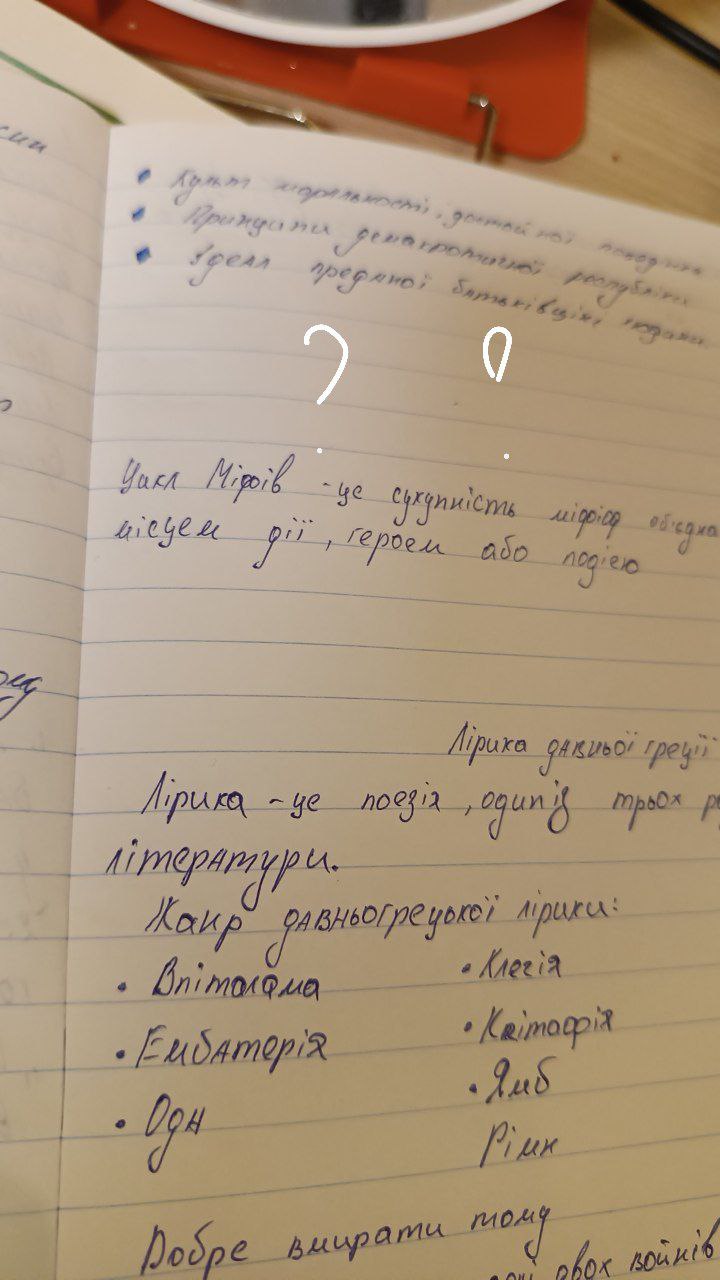 сии
• Культ моральності, достойної поведінки
• Принципи демократичної республіки
• Ідеал преданої батьківщині людини
? !
Цикл Міфів - це сукупність міфів об'єдна
місцем дії, героєм або подією
ому
Лірика давньої греції
Лірика - це поезія, один із трьох р
літератури.
Жанр давньогрецької лірики:
• Впіталама • Клегія
• Ембатерія • Квітафія
• Ода • Ямб
Рімн
Добре вмирати тому
двох войнів